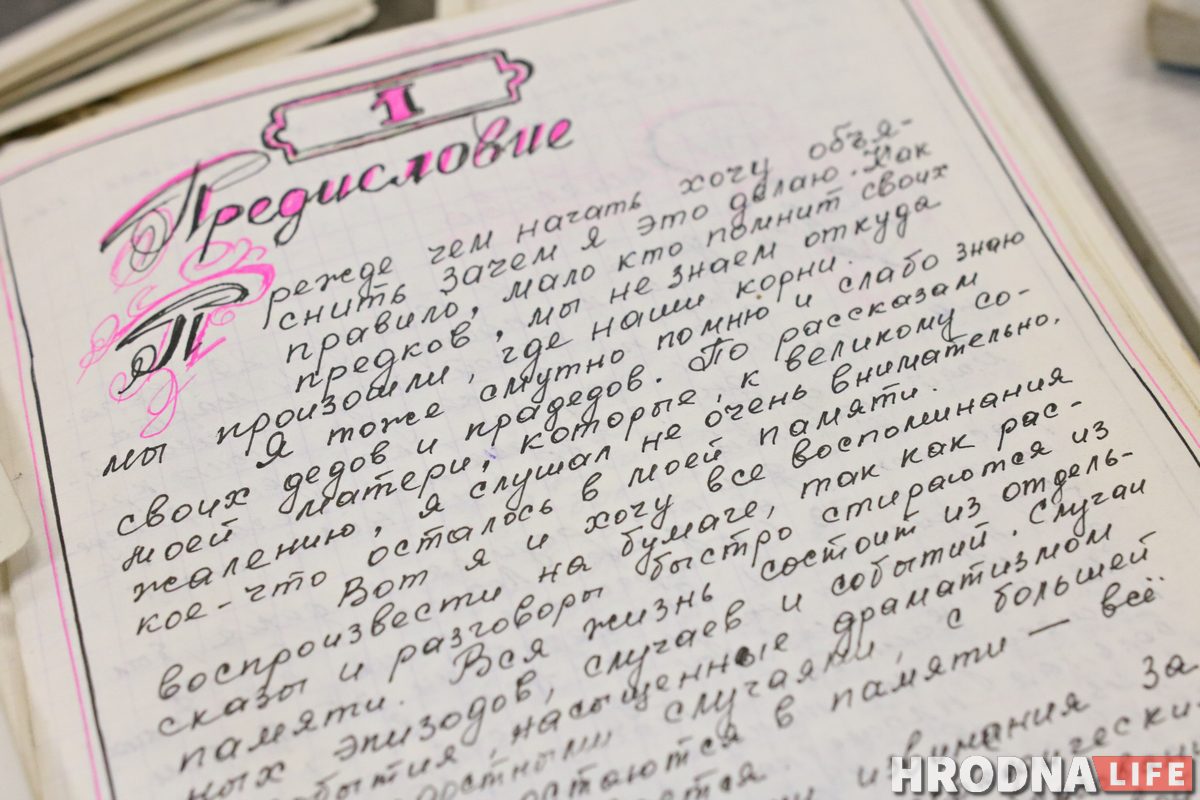 1
Предисловие
Прежде чем начать хочу объя-
снить зачем я это делаю. Как
правило, мало кто помнит своих
предков, мы не знаем откуда
мы произошли, где наши корни.
Я тоже смутно помню и слабо знаю
своих дедов и прадедов. По рассказам
моей матери, которые, к великому со-
жалению, я слушал не очень внимательно,
кое-что осталось в моей памяти.
Вот я и хочу все воспоминания
воспроизвести на бумаге, так как рас-
сказы и разговоры быстро стираются из
памяти. Вся жизнь состоит из отдель-
ных эпизодов, случаев и событий. Случаи
события, насыщенные драматизмом
случаями, с большей
остаются в памяти — всё
внимания за
HRODNA LIFE